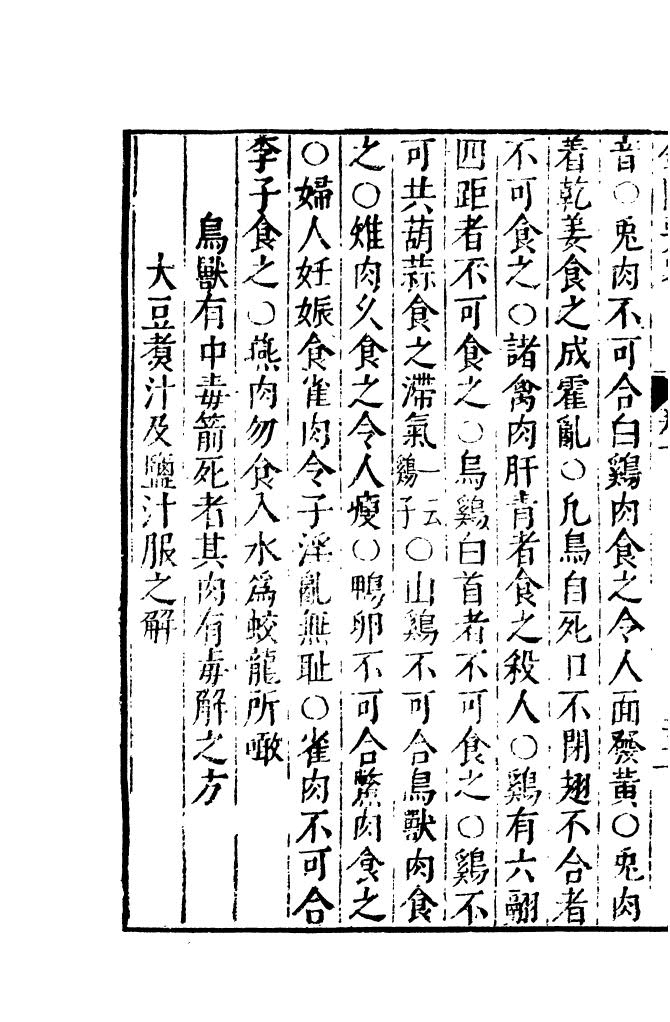 音○兎肉不可合白鷄肉食之令人面發黃○兎肉
着乾姜食之成霍亂○凡鳥自死口不閉翅不合者
不可食之○諸禽肉肝青者食之殺人○鷄有六翮
四距者不可食之○烏鷄白首者不可食之○鷄不
可共葫蒜食之滯氣一云鷄子○山鷄不可合鳥獸肉食
之○雉肉久食之令人瘦○鴨卵不可合鱉肉食之
○婦人妊娠食雀肉令子淫亂無耻○雀肉不可合
李子食之○燕肉勿食入水爲蛟龍所噉
鳥獸有中毒箭死者其肉有毒解之方
大豆煮汁及鹽汁服之解